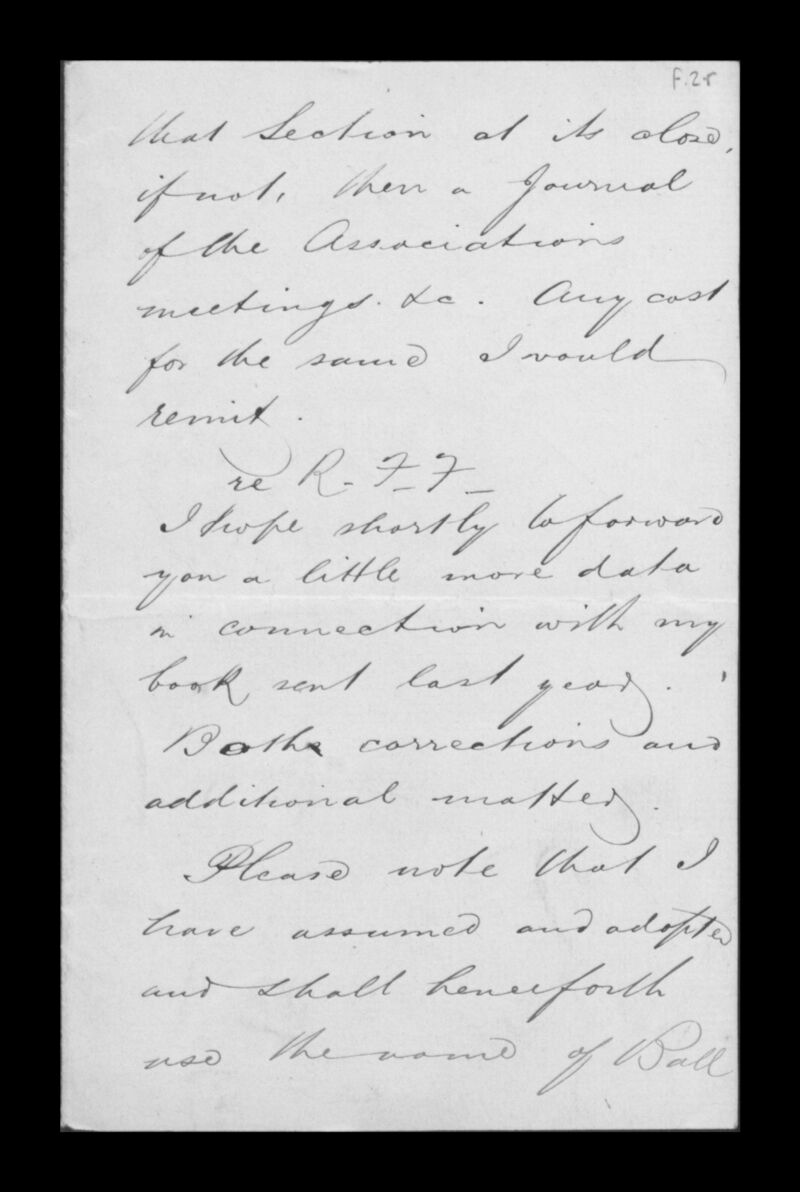 F.25
that Section at its close,
if not, then a Journal
of the Associations
meetings. &c. Any cost
for the same I would
remit.
re R. F. F.
I hope shortly to forward
you a little more data
in connection with my
book sent last year.
Both corrections and
additional matter.
Please note that I
have assumed and adopted
and shall henceforth
use the name of Ball